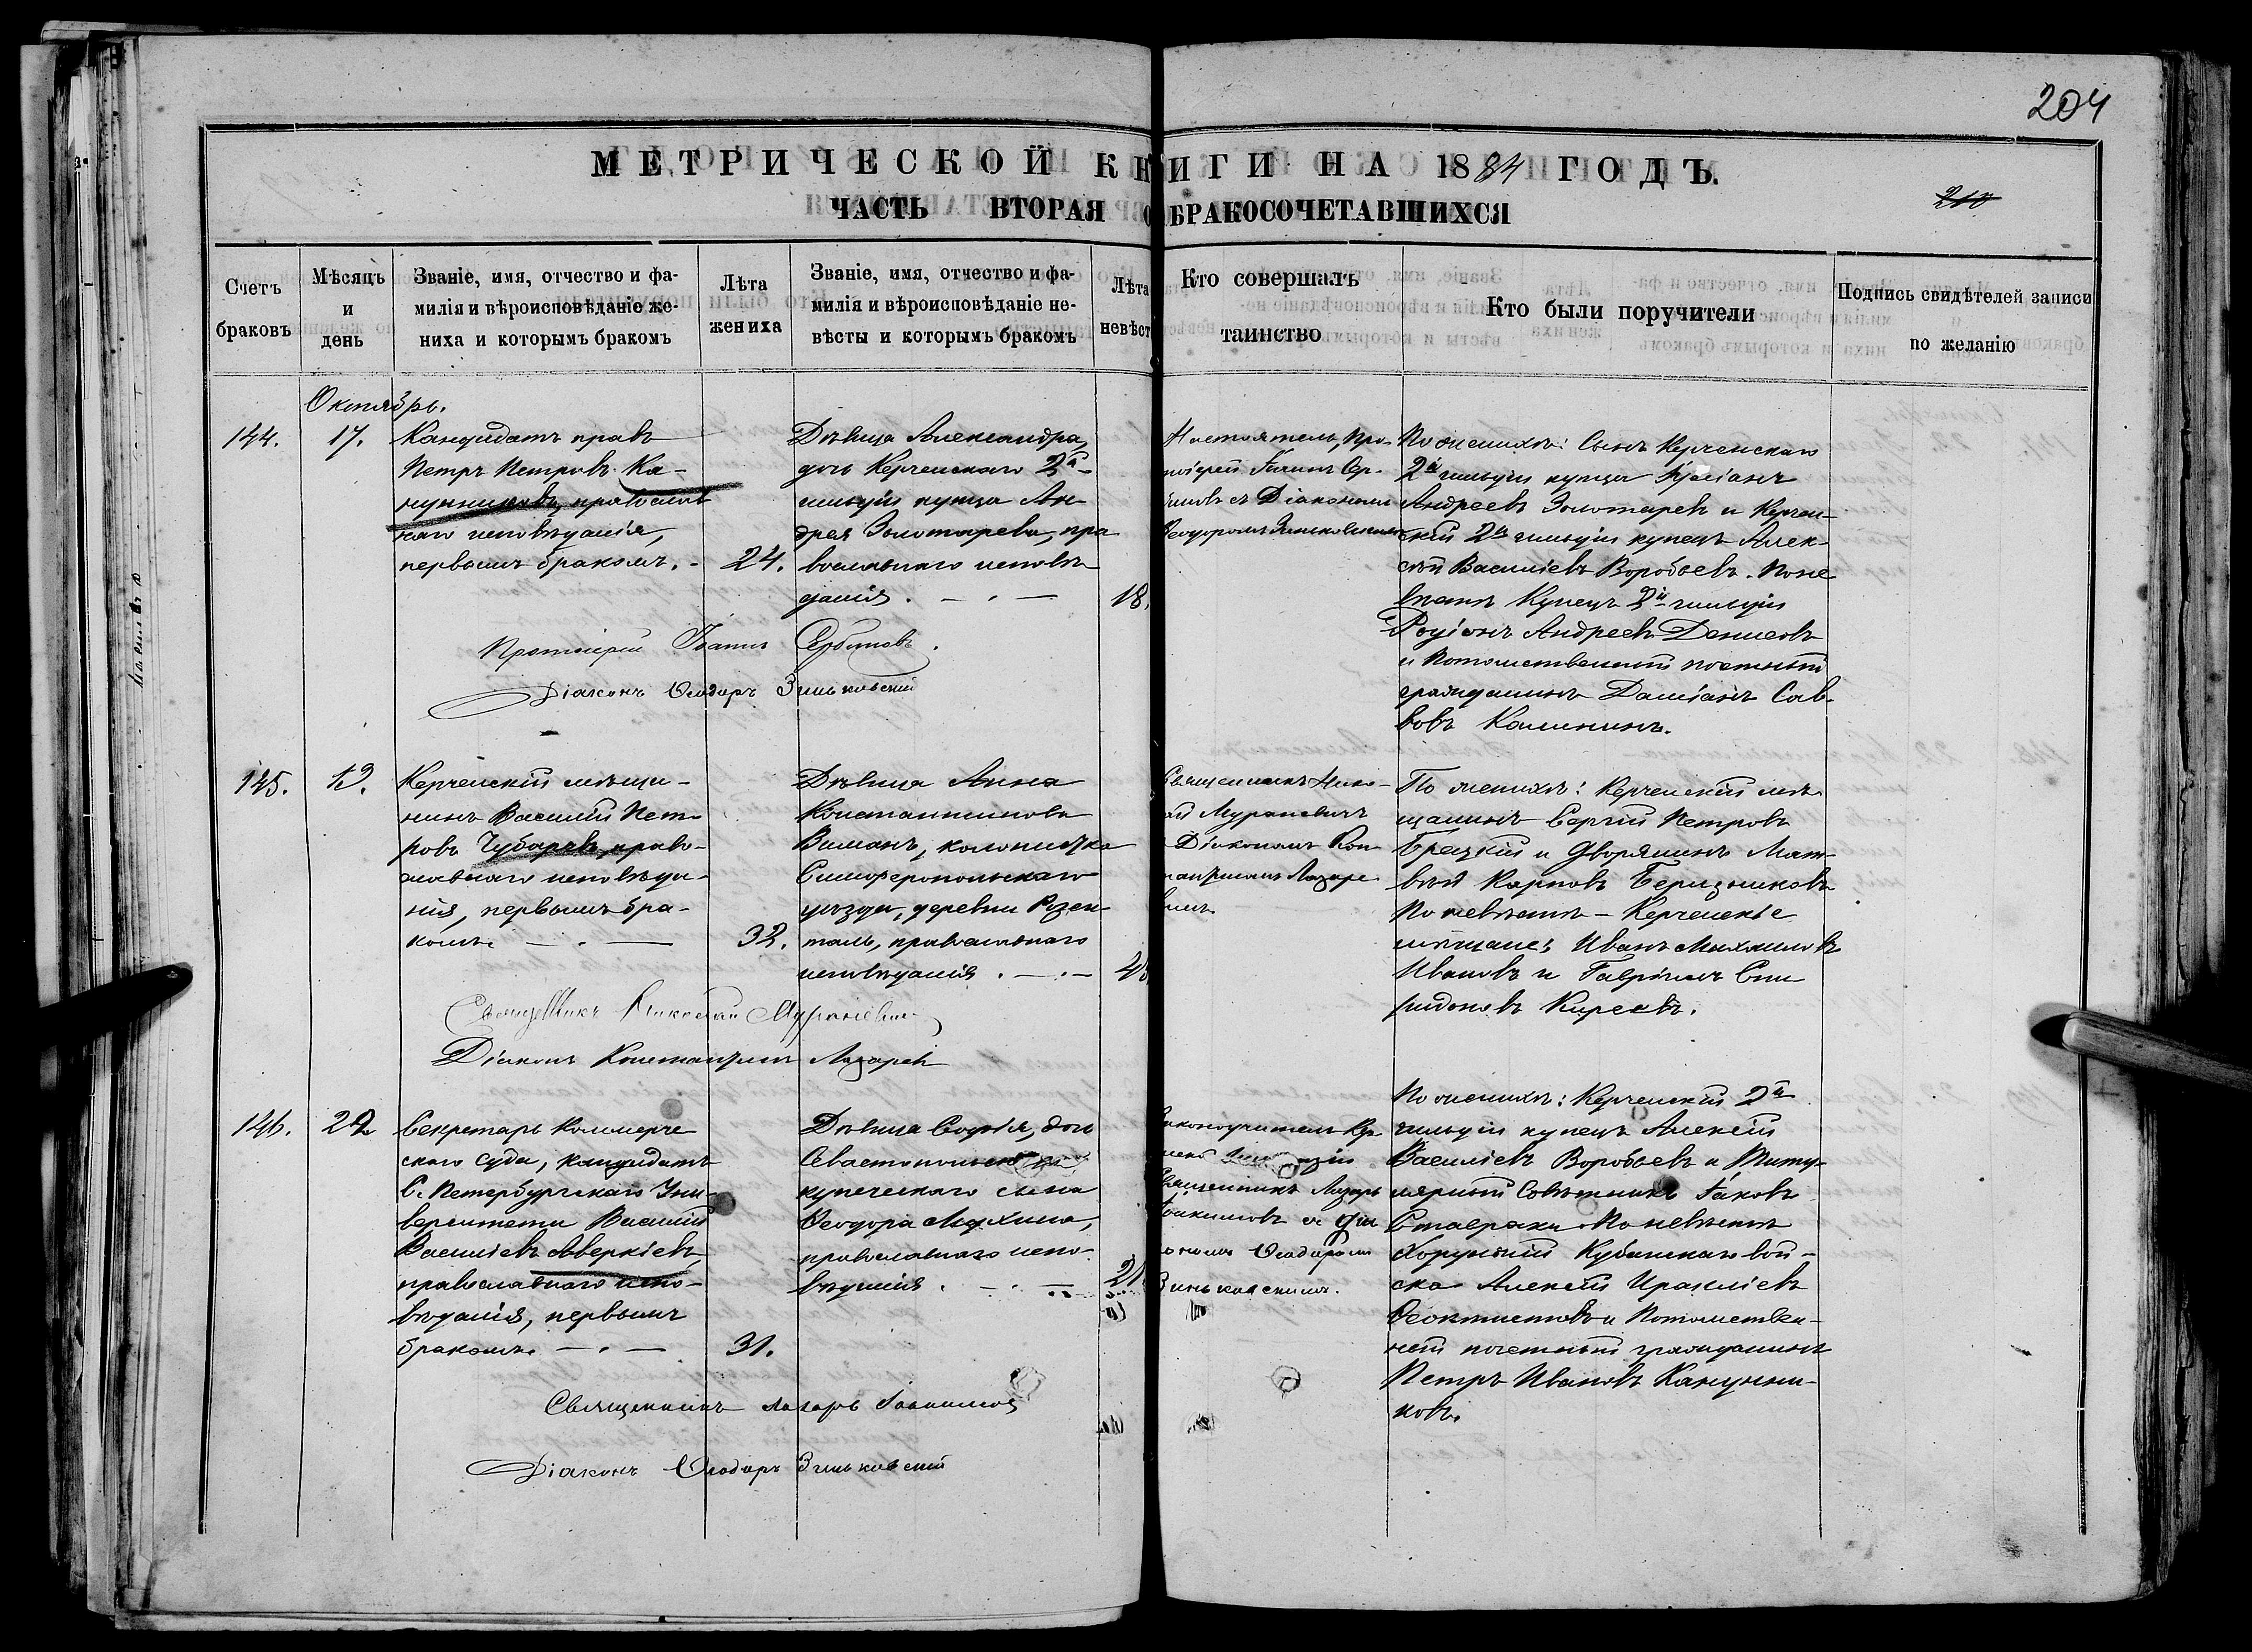 204
МЕТРИЧЕСКОЙ КНИГИ НА 1884 ГОДЪ.
210
ЧАСТЬ ВТОРАЯ О БРАКОСОЧЕТАВШИХСЯ
Счетъ браковъ
Мѣсяцъ и день
Званіе, имя, отчество и фа-
милія и вѣроисповѣданіе же-
ниха и которымъ бракомъ
Лѣта жениха
Званіе, имя, отчество и фа-
милія и вѣроисповѣданіе не-
вѣсты и которымъ бракомъ
Лѣта невѣст
Кто совершалъ
таинство
Кто были поручители
Подпись свидѣтелей записи
по желанію
Октябрь.
144.
17.
Кандидатъ правъ
Петръ Петровъ Ка-
нунниковъ, православ
наго исповѣданія,
первымъ бракомъ.
24.
Дѣвица Александра,
дочь Керченскаго 2й
гильдіи купца Ан-
дрея Золотарева, пра
вославнаго исповѣ
данія.
18.
Настоятель, Про-
тоіерей Іоаннъ Сер-
съ Діакономъ
Ѳеодоромъ Зиньковскимъ
По женихѣ: Сынъ Керченскаго
2й гильдіи купца
Андреевъ Золотаревъ и Керчен-
скій 2й гильдіи купецъ Алек-
сѣй Василіевъ Воробьевъ. По не-
вѣстѣ Купецъ 2й гильдіи
Родіонъ Андреевъ Денисовъ
и Потомственный почетный
гражданинъ Даміанъ Сав-
вовъ Калининъ.
Протоіерей Іоаннъ
Діаконъ Ѳеодоръ Зиньковскій
145.
Керченскій мѣща-
нинъ Василій Пет-
ровъ Чубаревъ, право-
славнаго исповѣда-
нія, первымъ бра-
комъ.
32.
Дѣвица Анна
Константинова
Виманъ, колонистка
Симферопольскаго
уѣзда, деревни Розен-
таль, православнаго
исповѣданія.
Священникъ Нико-
лай Мураневичъ
Діакономъ Кон
стантиномъ Лазаре
вымъ.
По женихѣ: Керченскій мѣ-
щанинъ Сергій Петровъ
и Дворянинъ Мат-
вѣй Карповъ
По невѣстѣ - Керченскіе
мѣщане: Иванъ Михаиловъ
Ивановъ и Гавріилъ Спи
ридоновъ Киреевъ.
Священникъ Николай Мураневичъ
Діаконъ Константинъ Лазаревъ
146.
22
Секретарь Коммерче
скаго Суда, кандидатъ
С. Петербургскаго Уни-
верситета Василій
Василіевъ Аверкіевъ,
православнаго испо-
вѣданія, первымъ
бракомъ.
31.
Дѣвица Софія, дочь
Севастопольскаго
купеческаго сына
Ѳеодора Мухина,
православнаго испо-
вѣданія.
21
Законоучитель Кер
Священникъ Лазарь
Іоакимовъ съ діа
кономъ Ѳеодоромъ
Зиньковскимъ.
По женихѣ: Керченскій 2й
гильдіи купецъ Алексѣй
Василіевъ Воробьевъ и Титу-
лярный Совѣтникъ Іаковъ
Ставраки. По невѣстѣ
Хорунжій Кубанскаго вой-
ска Алексѣй Иракліевъ
Ѳеоктистовъ и Потомствен-
ный почетный гражданинъ
Петръ Ивановъ Канунни-
ковъ.
Священникъ Лазарь Іоакимовъ
Діаконъ Ѳеодоръ Зиньковскій